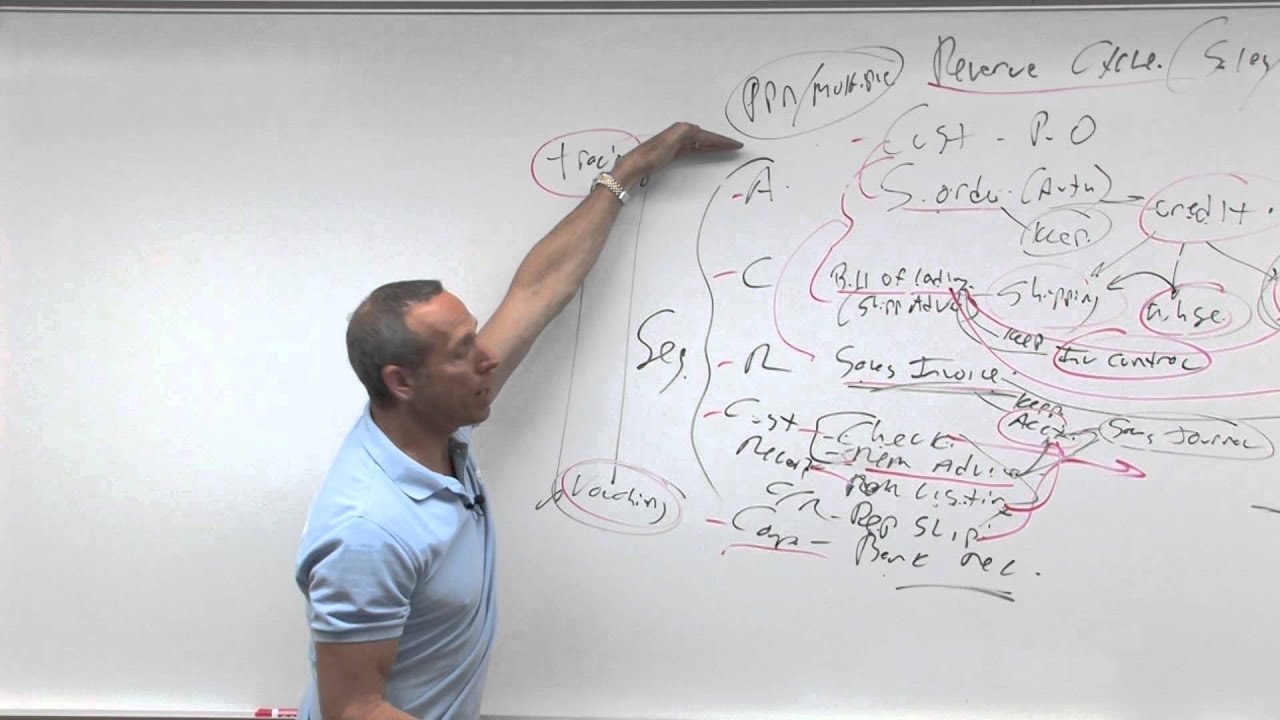 Revenue Cycle (Sales
PPN/Multiple
Cust - P-O
tracin
A.
S. order (Auth)
credit.
keep
C
Bill of lading
(Shipp Adv
Shipping
whse.
Seg.
keep
Inv Control
R
Sales Invoice
keep
Acct.
Sales Journal
Cust
Check
Rem Advice
Rem Listing
Vouching
C/R - Dep Slip
Comp - Bank Rec.